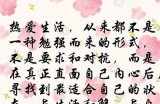 热爱生活，从来都不是
一种勉强而来的形式，
而是要求和对抗，而是
在真正直面自己内心后
寻找到最适合自己的状